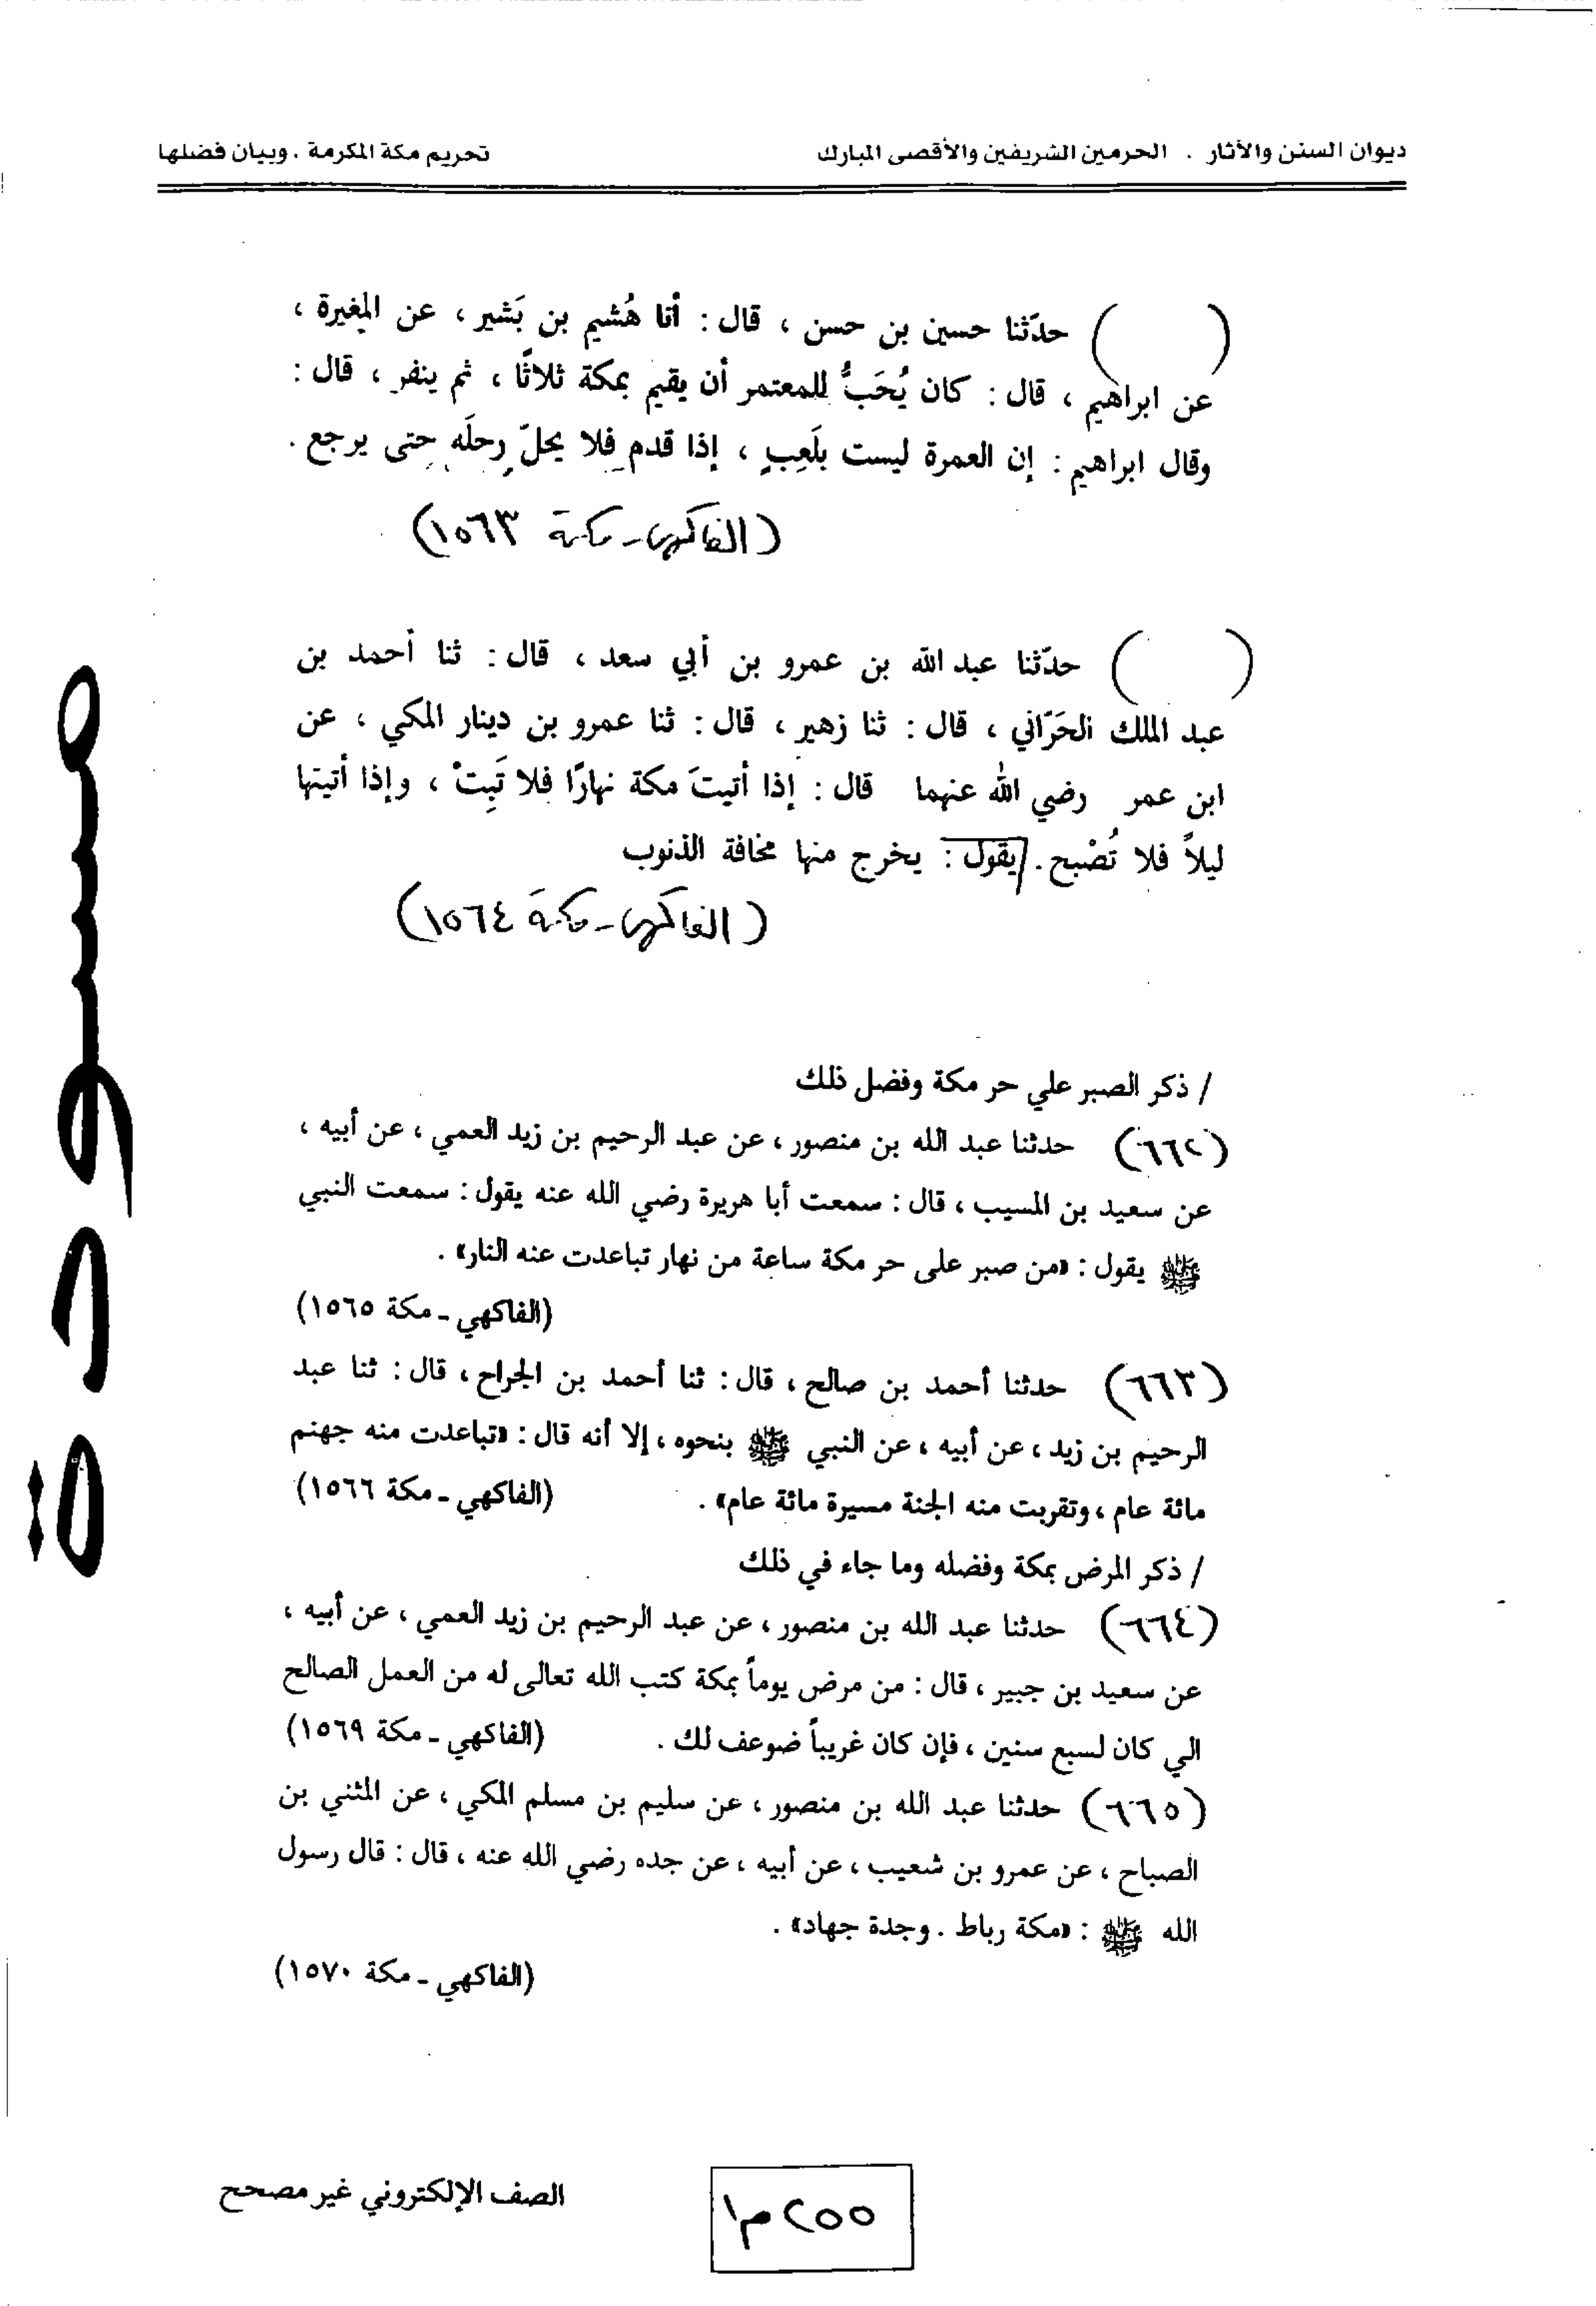 ديوان السنن والآثار . الحرمين الشريفين والأقصى المبارك
تحريم مكة المكرمة . وبيان فضلها
( ) حدّثنا حسين بن حسن ، قال : أنا هُشيم بن بَشير ، عن المغيرة ،
عن ابراهيم ، قال : كان يُحَبُّ للمعتمر أن يقيم بمكة ثلاثًا ، ثم ينفر ، قال :
وقال ابراهيم : إن العمرة ليست بلَعِبٍ ، إذا قدم فلا يحلّ رحلَه حتى يرجع .
(الفاكهي - مكة ١٥٦٣)
( ) حدّثنا عبد الله بن عمرو بن أبي سعد ، قال : ثنا أحمد بن
عبد الملك الحَرّاني ، قال : ثنا زهير ، قال : ثنا عمرو بن دينار المكي ، عن
ابن عمر رضي الله عنهما قال : إذا أتيتَ مكة نهارًا فلا تَبِتْ ، وإذا أتيتها
ليلاً فلا تُصْبح . يقول : يخرج منها مخافة الذنوب
(الفاكهي - مكة ١٥٦٤)
/ ذكر الصبر علي حر مكة وفضل ذلك
(٦٦٢) حدثنا عبد الله بن منصور ، عن عبد الرحيم بن زيد العمي ، عن أبيه ،
عن سعيد بن المسيب ، قال : سمعت أبا هريرة رضي الله عنه يقول : سمعت النبي
ﷺ يقول : «من صبر على حر مكة ساعة من نهار تباعدت عنه النار» .
(الفاكهي - مكة ١٥٦٥)
(٦٦٣) حدثنا أحمد بن صالح ، قال : ثنا أحمد بن الجراح ، قال : ثنا عبد
الرحيم بن زيد ، عن أبيه ، عن النبي ﷺ بنحوه ، إلا أنه قال : «تباعدت منه جهنم
مائة عام ، وتقربت منه الجنة مسيرة مائة عام» . (الفاكهي - مكة ١٥٦٦)
/ ذكر المرض بمكة وفضله وما جاء في ذلك
(٦٦٤) حدثنا عبد الله بن منصور ، عن عبد الرحيم بن زيد العمي ، عن أبيه ،
عن سعيد بن جبير ، قال : من مرض يوماً بمكة كتب الله تعالى له من العمل الصالح
الي كان لسبع سنين ، فإن كان غريباً ضوعف لك . (الفاكهي - مكة ١٥٦٩)
(٦٦٥) حدثنا عبد الله بن منصور ، عن سليم بن مسلم المكي ، عن المثني بن
الصباح ، عن عمرو بن شعيب ، عن أبيه ، عن جده رضي الله عنه ، قال : قال رسول
الله ﷺ : «مكة رباط . وجدة جهاد» .
(الفاكهي - مكة ١٥٧٠)
مسودة
٢٥٥ م١
الصف الإلكتروني غير مصحح